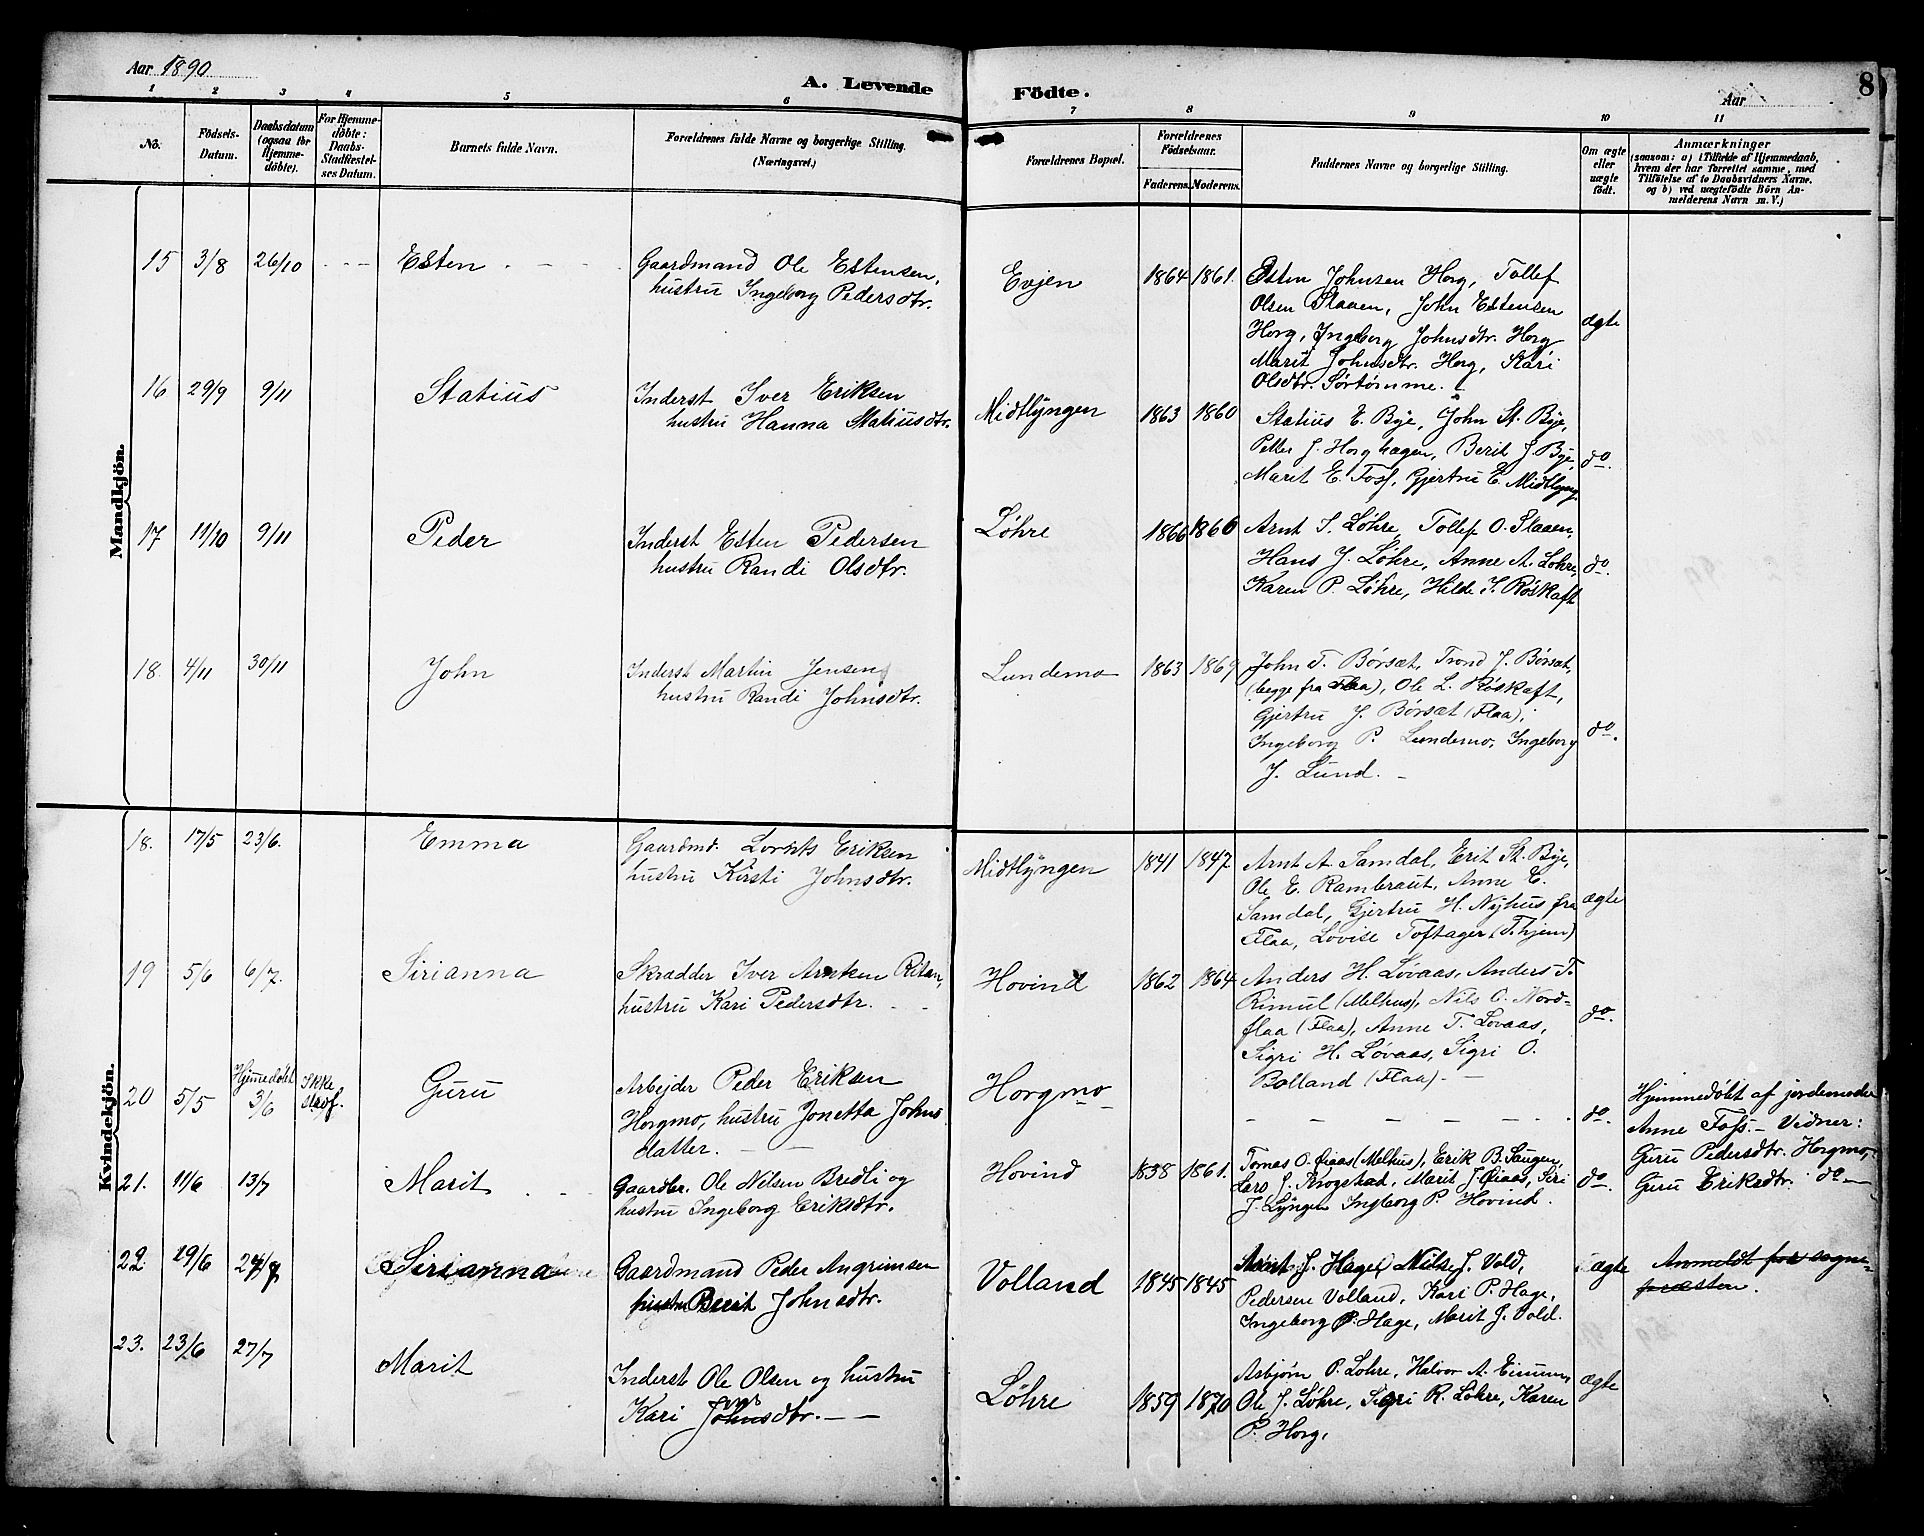 Aar 1890
A. Levende
Födte.
Aar
8
1 2 3 4 5 6 7 8 9 10 11
No.
Födsels-
Datum.
Daabsdatum
(ogsaa for
Hjemme-
döbte).
For Hjemme-
döbte:
Daabs-
Stadfæstel-
ses Datum.
Barnets fulde Navn.
Forældrenes fulde Navne og borgerlige Stilling.
(Næringsvei.)
Forældrenes Bopæl.
Forældrenes
Födselsaar.
Faderens. Moderens.
Faddernes Navne og borgerlige Stilling.
Om ægte
eller
uægte
födt.
Anmærkninger
(saasom: a) i Tilfælde af Hjemmedaab,
hvem der har forrettet samme, med
Tilföielse af to Daabsvidners Navne.
og b) ved uægtefödte Börn An-
melderens Navn m. V.)
Mandkjön.
15 3/8 26/10 - - - Esten
Gaardmand Ole Estensen,
hustru Ingeborg Pedersdtr.
Evjen 1864 1861.
Esten Johnsen Horg, Tollef
Olsen Slaaen, John Estensen
Horg, Ingeborg Johnsdtr. Horg
Marit Johnsdtr. Horg, Kari
Olsdtr. Sørtømme.
ægte
16 29/9 9/11 Statius
Inderst Iver Eriksen
hustru Hanna Statiusdtr.
Midtlyngen 1863 1860
Statius E. Bye, John St. Bye,
Petter J. Horghagen, Berit J. Bye,
Marit E. Foss, Gjertru E. Midtlyng.
do.
17 11/10 9/11 Peder
Inderst Esten Pedersen
hustru Randi Olsdtr.
Løhre 1866 1860
Arnt S. Løhre, Tollef O. Slaaen,
Hans J. Løhre, Anne A. Løhre,
Karen P. Løhre, Hilde J. Røskaft
do.
18. 4/11 30/11 John
Inderst Martin Jensen
hustru Randi Johnsdtr.
Lundemo 1863 1869
John T. Børsæt, Trond J. Børsæt,
(begge fra Flaa), Ole L. Røskaft,
Gjertru J. Børsæt (Flaa),
Ingeborg P. Lundemo, Ingeborg
J. Lund. -
do.
Kvindekjön.
18. 17/5 23/6. Emma
Gaardmd. Lorents Eriksen
hustru Kirsti Johnsdtr.
Midtlyngen 1841 1847
Arnt A. Samdal, Erik St. Bye,
Ole E. Rambraut, Anne E.
Samdal, Gjertru H. Nyhus fra
Flaa, Lovise Toftager (T.hjem)
ægte
19 5/6 6/7. Sirianna
Skrædder Iver Arntsen Ritan,
hustru Kari Pedersdtr. - -
Hovind 1862 1864
Anders H. Løvaas, Anders T.
Rimul (Melhus), Nils O. Nord-
flaa (Flaa), Anne T. Lovaas,
Sigri H. Løvaas, Sigri O.
Bolland (Flaa). -
do.
20 5/5 Hjemmedøbt 3/6 Ikke stadf. Guru
Arbejder Peder Eriksen
Horgmo, hustru Jonetta Johns
datter. - -
Horgmo
- - - - - -
do.
Hjemmedøbt af jordemoder
Anne Foss. - Vidner:
Guru Pedersdtr. Horgmo,
Guru Eriksdtr. do -
21. 11/6 13/7 Marit
Gaardbr. Ole Nilsen Bredli og
hustru Ingeborg Eriksdtr.
Hovind 1838 1861.
Tomas O. Øiaas (Melhus), Erik B. Saugen,
Lars J. Krogstad, Marit J. Øiaas, Siri
J. Lyngen Ingborg P. Hovind.
do.
22. 19/6 Sirianna
Gaardmand Peder Angrimsen
hustru Berit Johnsdtr.
Volland 1845 1845
Arnt J. Hage, Nils J. Vold,
Pedersen Volland, Kari P. Hage,
Ingeborg P. Hage, Marit J. Vold.
ægte
Anmeldt for sogne-
præsten.
23. 23/6 27/7 Marit
Inderst Ole Olsen og hustru
Kari Johnsdtr. - -
Løhre 1859 1870
Asbjørn P. Lohre, Halvor A.
Ole J. Løhre, Sigri R. Løhre, Karen
P. Horg,
ægte